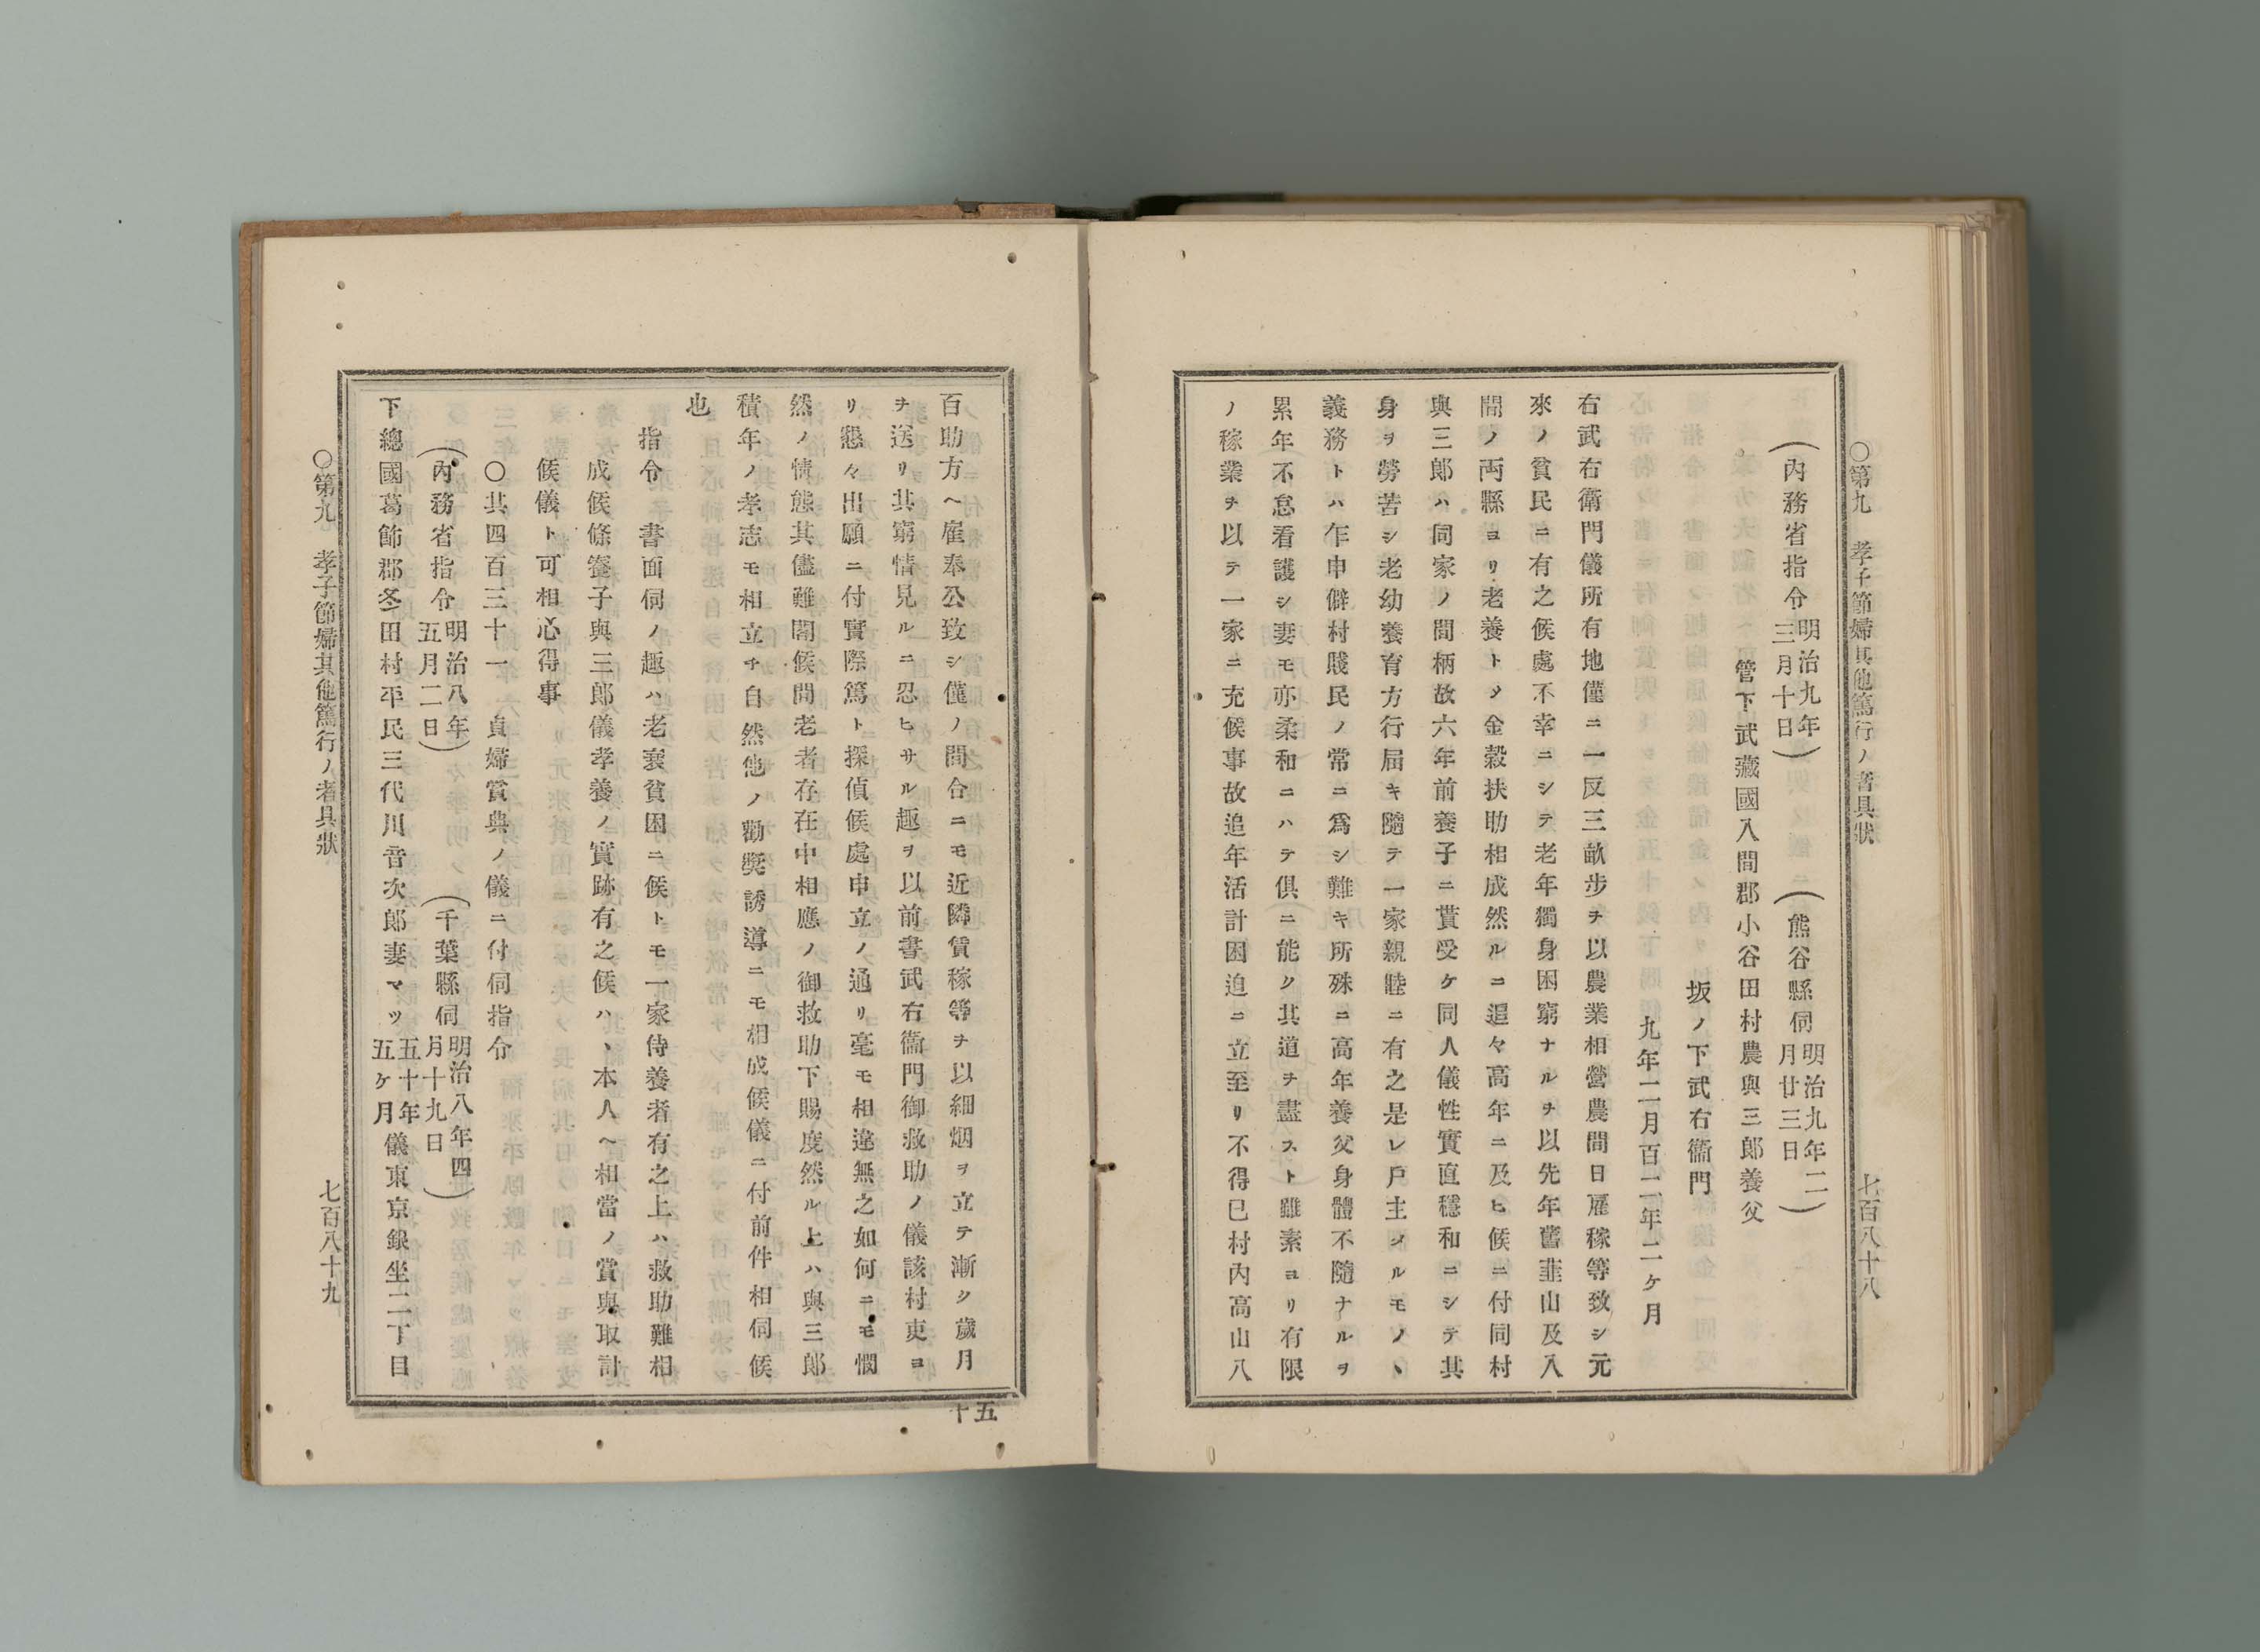 〇第九　孝子節婦其他篤行ノ者具狀　七百八十八
（內務省指令明治九年三月十日）　（熊谷縣伺明治九年二月廿三日）
管下武藏國入間郡小谷田村農與三郎養父
坂ノ下武右衞門
九年二月百二年二ケ月
右武右衞門儀所有地僅ニ一反三畝步ヲ以農業相營農間日雇稼等致シ元
來ノ貧民ニ有之候處不幸ニシテ老年獨身困窮ナルヲ以先年舊韮山及入
間ノ両縣ヨリ老養トメ金穀扶助相成然ルニ追々高年ニ及ヒ候ニ付同村
與三郎ハ同家ノ間柄故六年前養子ニ貰受ケ同人儀性實直穩和ニシテ其
身ヲ勞苦シ老幼養育方行屆キ隨テ一家親睦ニ有之是レ戶主タルモノヽ
義務トハ乍申僻村賤民ノ常ニ爲シ難キ所殊ニ高年養父身體不隨ナルヲ
累年不怠看護シ妻モ亦柔和ニハテ俱ニ能ク其道ヲ盡スト雖素ヨリ有限
ノ稼業ヲ以テ一家ニ充候事故追年活計困迫ニ立至リ不得已村內高山八
百助方ヘ雇奉公致シ僅ノ間合ニモ近隣賃稼等ヲ以細烟ヲ立テ漸ク歲月
ヲ送リ其窮情見ルニ忍ヒサル趣ヲ以前書武右衞門御救助ノ儀該村吏ヨ
リ懇々出願ニ付實際篤ト探偵候處申立ノ通リ毫モ相違無之如何ニモ憫
然ノ情態其儘難閣候間老者存在中相應ノ御救助下賜度然ル上ハ與三郎
積年ノ孝志モ相立チ自然他ノ勸奬誘導ニモ相成候儀ニ付前件相伺候
也
指令　書面伺ノ趣ハ老衰貧困ニ候トモ一家侍養者有之上ハ救助難相
成候條養子與三郎儀孝養ノ實跡有之候ハヽ本人ヘ相當ノ賞與取計
候儀ト可相心得事
〇其四百三十一　貞婦賞典ノ儀ニ付伺指令
（內務省指令明治八年五月二日）　（千葉縣伺明治八年四月十九日）
下總國葛飾郡冬田村平民三代川音次郎妻マツ五十年五ケ月儀東京銀坐二丁目
〇第九　孝子節婦其他篤行ノ者具狀　七百八十九
五十